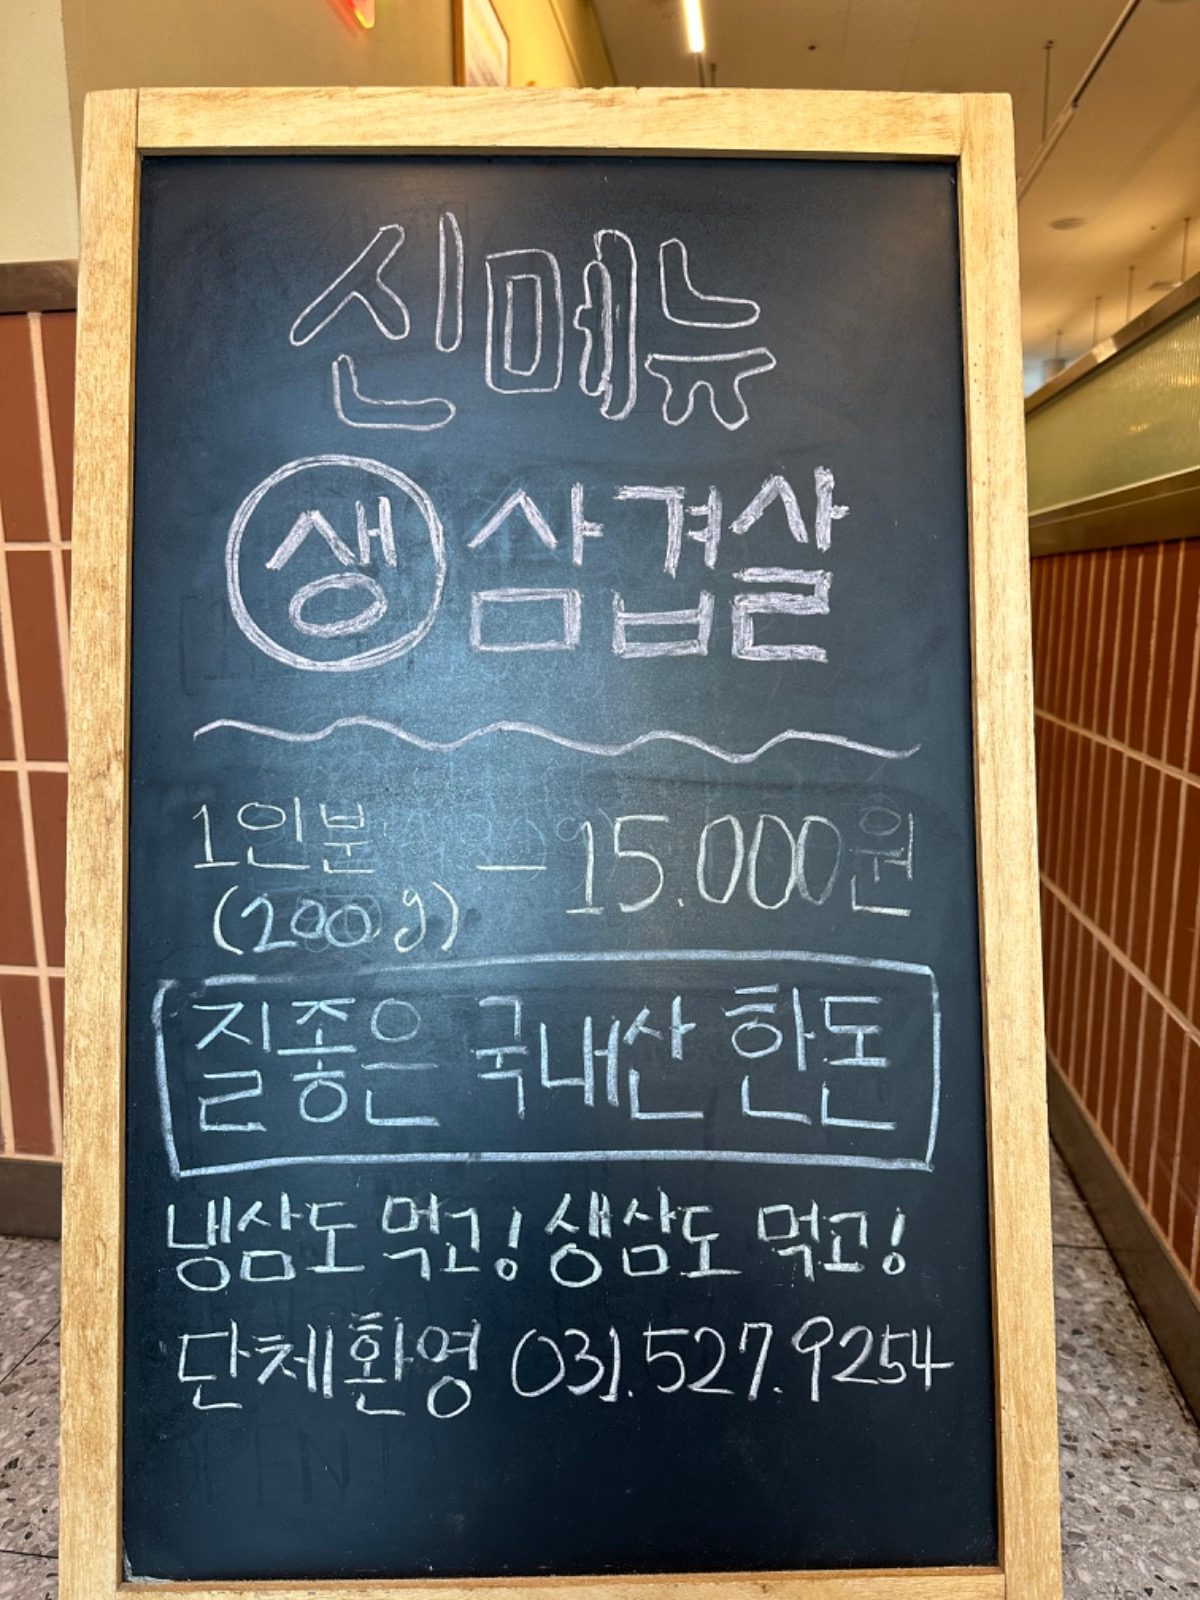 신메뉴
생 삼겹살
1인분 - 15.000원
(200g)
질좋은 국내산 한돈
냉삼도 먹고! 생삼도 먹고!
단체환영 031.527.9254